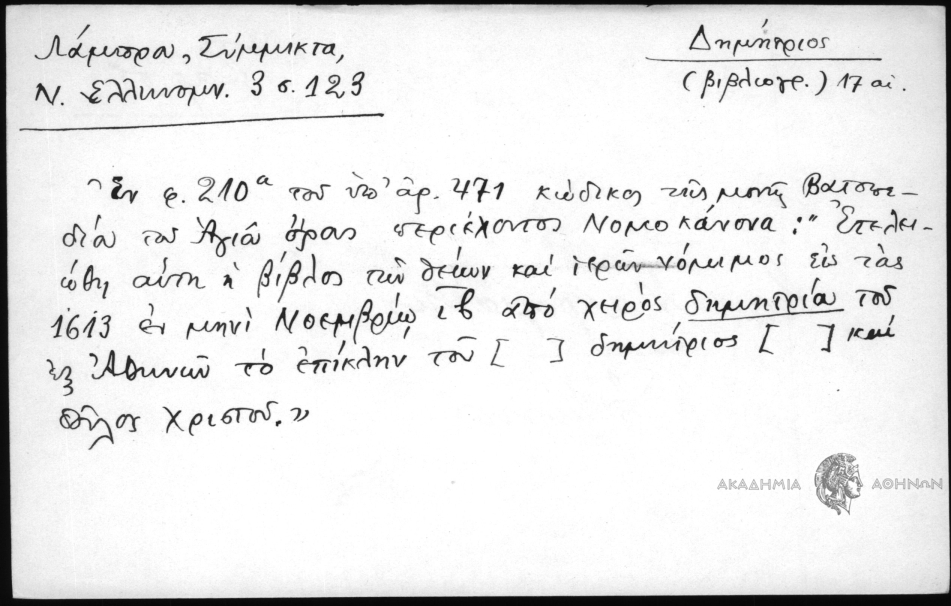 Λάμπρου, Σύμμικτα,
Ν. Ἑλληνομν. 3 σ. 123
Δημήτριος
(βιβλιογρ.) 17 αἰ.
Ἐν φ. 210α τοῦ ὑπ' ἀρ. 471 κώδικος τῆς μονῆς Βατοπε-
δίου τοῦ Ἁγίου Ὄρους περιέχοντος Νομοκάνονα: "Ἐτελει-
ώθη αὕτη ἡ βίβλος τῶν θείων καὶ ἱερῶν νόμιμος εἰς τὰς
1613 ἐν μηνὶ Νοεμβρίῳ ιβ ἀπό χειρὸς δημητρίου τοῦ
ἐξ Ἀθηνῶν τὸ ἐπίκλην τοῦ [ ] δημήτριος [ ] καὶ
Χριστοῦ."
ΑΚΑΔΗΜΙΑ ΑΘΗΝΩΝ